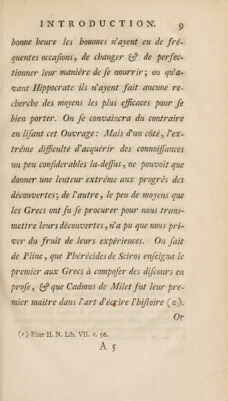 INTRODUCTION. 9
bonne heure les hommes n'ayent eu de fré-
quentes occaſions, de changer & de perfec-
tionner leur manière de ſe nourrir; ou qu'a-
vant Hippocrate ils n'ayent fait aucune re-
cherche des moyens les plus efficaces pour ſe
bien porter. On ſe convaincra du contraire
en liſant cet Ouvrage: Mais d'un côté, l'ex-
trême difficulté d'acquérir des connoiſſances
un peu conſiderables la-deſſus, ne pouvoit que
donner une lenteur extrême aux progrès des
découvertes; de l'autre, le peu de moyens que
les Grecs ont ſu ſe procurer pour nous trans-
mettre leurs découvertes, n'a pu que nous pri-
ver du fruit de leurs expériences. On ſait
de Pline, que Phérécides de Sciros enſeigna le
premier aux Grecs à compoſer des diſcours en
proſe, & que Cadmus de Milet fut leur pre-
mier maitre dans l'art d'écrire l'hiſtoire (e).
Or
(e) Pline H. N. Lib. VII. c. 56.
A 5